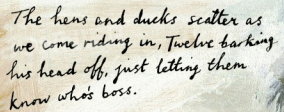 The hens and ducks scatter as
we come riding in, Twelve barking
his head off, just letting them
know who's boss.